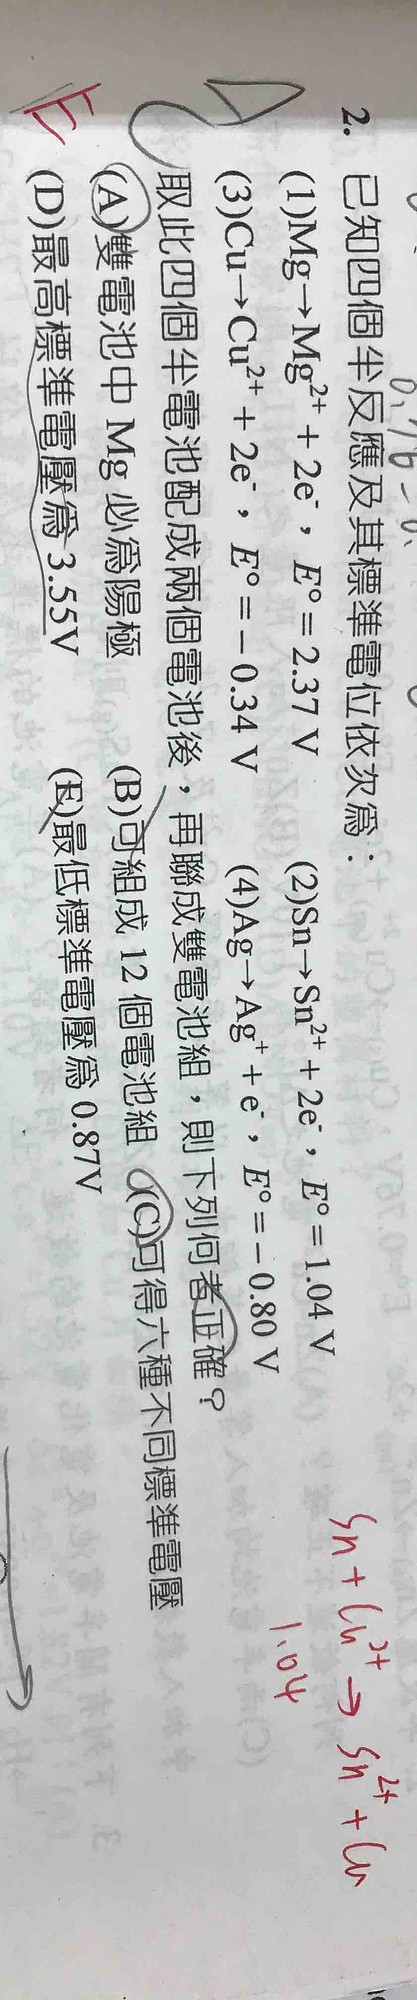 2. 已知四個半反應及其標準電位依次為：
(1)Mg→Mg²⁺ + 2e⁻，E°＝2.37 V (2)Sn→Sn²⁺ + 2e⁻，E°＝1.04 V
(3)Cu→Cu²⁺ + 2e⁻，E°＝−0.34 V (4)Ag→Ag⁺ + e⁻，E°＝−0.80 V
取此四個半電池配成兩個電池後，再聯成雙電池組，則下列何者正確？
(A)雙電池中 Mg 必為陽極 (B)可組成 12 個電池組 (C)可得六種不同標準電壓
(D)最高標準電壓為 3.55V (E)最低標準電壓為 0.87V
Sn + Cu²⁺ → Sn²⁺ + Cu
1.04
E